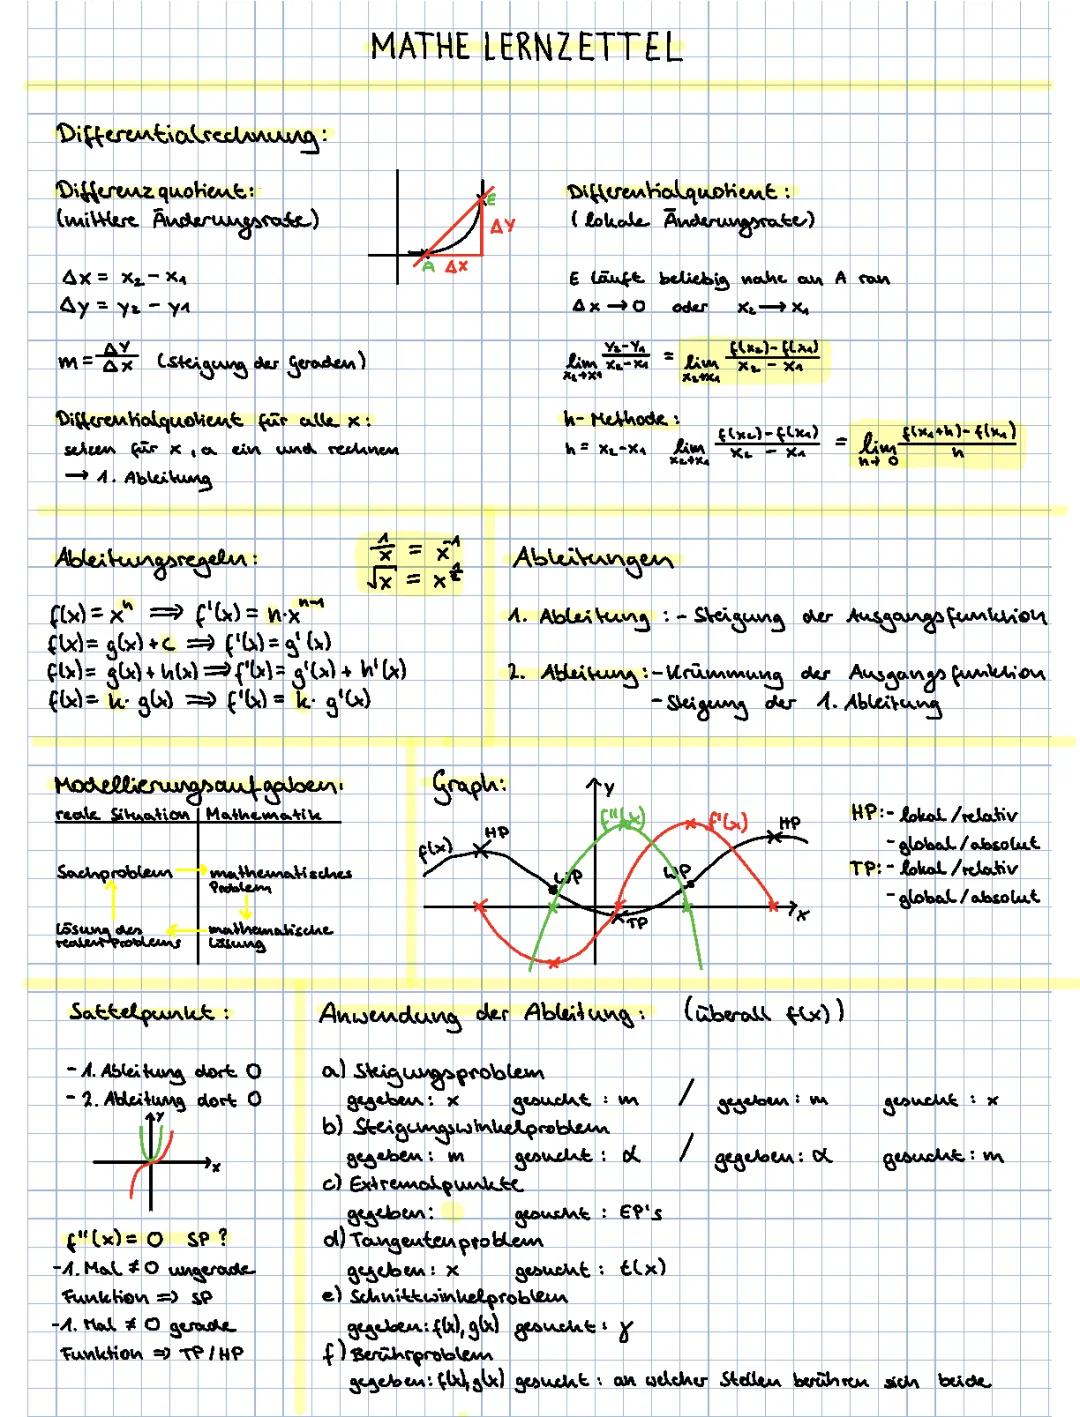 MATHE LERNZETTEL
Differentialrechnung:
Differenzquotient:
(mittlere Änderungsrate)
Δx = x₂ - x₁
Δy = y₂ - y₁
m = Δy/Δx (Steigung der Geraden)
Differentialquotient für alle x:
setzen für x, a ein und rechnen
→ 1. Ableitung
E
Δy
A Δx
Differentialquotient:
(lokale Änderungsrate)
E läuft beliebig nahe an A ran
Δx → 0 oder x₂ → x₁
lim x₂→x₁ (y₂-y₁)/(x₂-x₁) = lim x₂→x₁ (f(x₂)-f(x₁))/(x₂-x₁)
h-Methode:
h = x₂-x₁ lim x₂→x₁ (f(x₂)-f(x₁))/(x₂-x₁) = lim h→0 (f(x₁+h)-f(x₁))/h
Ableitungsregeln:
1/x = x⁻¹
√x = x^½
f(x) = xⁿ ⟹ f'(x) = n·xⁿ⁻¹
f(x) = g(x) + c ⟹ f'(x) = g'(x)
f(x) = g(x) + h(x) ⟹ f'(x) = g'(x) + h'(x)
f(x) = k· g(x) ⟹ f'(x) = k· g'(x)
Ableitungen
1. Ableitung : - Steigung der Ausgangsfunktion
2. Ableitung : - Krümmung der Ausgangsfunktion
- Steigung der 1. Ableitung
Modellierungsaufgaben:
reale Situation | Mathematik
Sachproblem → mathematisches
Problem
Lösung des
realen Problems
mathematische
Lösung
Graph:
y
f''(x)
f'(x)
HP
f(x)
HP
WP
WP
TP
x
HP: - lokal/relativ
- global/absolut
TP: - lokal/relativ
- global/absolut
Sattelpunkt:
- 1. Ableitung dort 0
- 2. Ableitung dort 0
y
x
f''(x) = 0 SP ?
-1. Mal ≠ 0 ungerade
Funktion ⇒ SP
-1. Mal ≠ 0 gerade
Funktion ⇒ TP/HP
Anwendung der Ableitung: (überall f(x))
a) Steigungsproblem
gegeben: x gesucht: m / gegeben: m gesucht: x
b) Steigungswinkelproblem
gegeben: m gesucht: α / gegeben: α gesucht: m
c) Extremalpunkte
gegeben: gesucht: EP's
d) Tangentenproblem
gegeben: x gesucht: t(x)
e) Schnittwinkelproblem
gegeben: f(x), g(x) gesucht: γ
f) Berührproblem
gegeben: f(x), g(x) gesucht: an welcher Stellen berühren sich beide